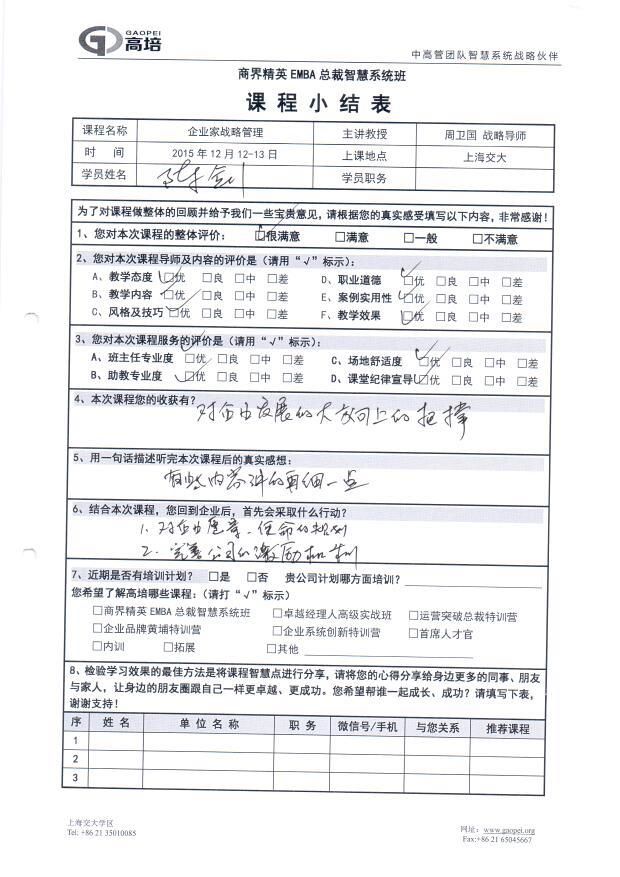 GAOPEI
高培
中高管团队智慧系统战略伙伴
商界精英 EMBA 总裁智慧系统班
课程小结表
课程名称 企业家战略管理 主讲教授 周卫国 战略导师
时 间 2015 年 12 月 12-13 日 上课地点 上海交大
学员姓名 陈剑 学员职务
为了对课程做整体的回顾并给予我们一些宝贵意见,请根据您的真实感受填写以下内容,非常感谢!
1、您对本次课程的整体评价: ☑很满意 □满意 □一般 □不满意
2、您对本次课程导师及内容的评价是(请用“√”标示):
A、教学态度 ☑优 □良 □中 □差 D、职业道德 ☑优 □良 □中 □差
B、教学内容 ☑优 □良 □中 □差 E、案例实用性 ☑优 □良 □中 □差
C、风格及技巧 ☑优 □良 □中 □差 F、教学效果 ☑优 □良 □中 □差
3、您对本次课程服务的评价是(请用“√”标示):
A、班主任专业度 ☑优 □良 □中 □差 C、场地舒适度 ☑优 □良 □中 □差
B、助教专业度 ☑优 □良 □中 □差 D、课堂纪律宣导 ☑优 □良 □中 □差
4、本次课程您的收获有?
对企业发展的大方向上的把握
5、用一句话描述听完本次课程后的真实感想:
有些内容讲的再细一点
6、结合本次课程,您回到企业后,首先会采取什么行动?
1、对企业愿景、使命的规划
2、完善公司的激励机制
7、近期是否有培训计划? □是 □否 贵公司计划哪方面培训?
您希望了解高培哪些课程:(请打“√”标示)
□商界精英 EMBA 总裁智慧系统班 □卓越经理人高级实战班 □运营突破总裁特训营
□企业品牌黄埔特训营 □企业系统创新特训营 □首席人才官
□内训 □拓展 □其他
8、检验学习效果的最佳方法是将课程智慧点进行分享,请将您的心得分享给身边更多的同事、朋友
与家人,让身边的朋友圈跟自己一样更卓越、更成功。您希望帮谁一起成长、成功?请填写下表,
谢谢支持!
序 姓 名 单 位 名 称 职 务 微信号/手机 与您关系 推荐课程
1
2
3
上海交大学区
Tel: +86 21 35010085
网址: www.gaopei.org
Fax:+86 21 65045667